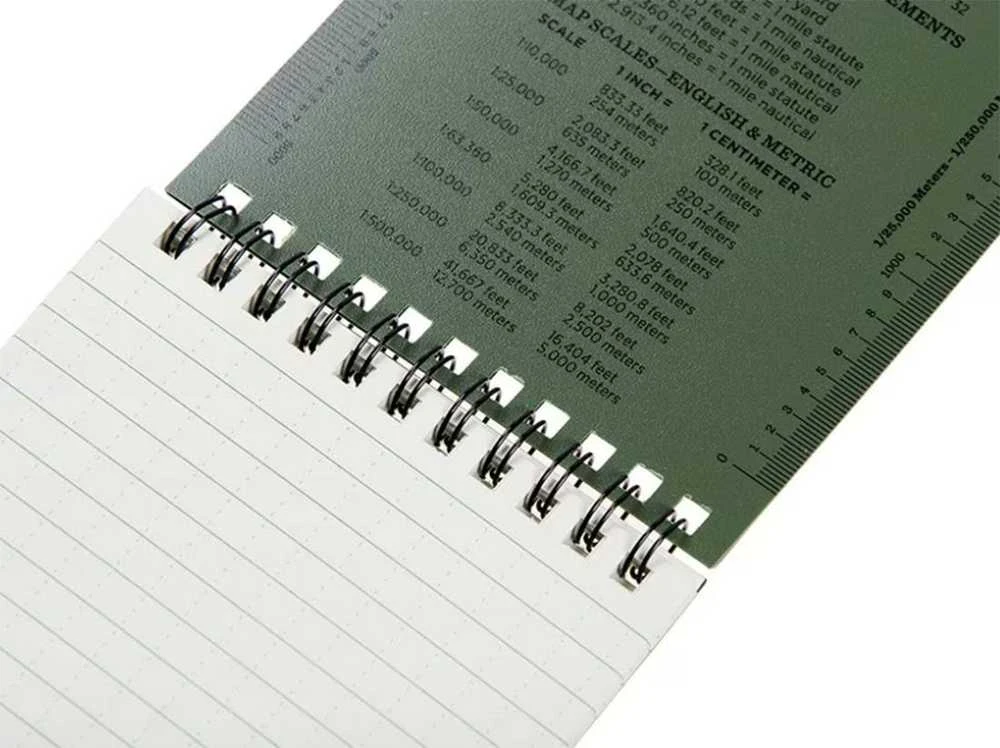 32
EMENTS
= 1 yard
ds = 1 mile statute
feet = 1 mile nautical
6.12 feet = 1 mile nautical
360 inches = 1 mile statute
2,913.4 inches = 1 mile nautical
MAP SCALES—ENGLISH & METRIC
SCALE 1 INCH = 1 CENTIMETER =
1:10,000 833.33 feet 328.1 feet
254 meters 100 meters
1:25,000 2,083.3 feet 820.2 feet
635 meters 250 meters
1:50,000 4,166.7 feet 1,640.4 feet
1,270 meters 500 meters
1:63,360 5,280 feet 2,078 feet
1,609.3 meters 633.6 meters
1:100,000 8,333.3 feet 3,280.8 feet
2,540 meters 1,000 meters
1:250,000 20,833 feet 8,202 feet
6,350 meters 2,500 meters
1:500,000 41,667 feet 16,404 feet
12,700 meters 5,000 meters
1/25,000 Meters—1/250,000
0 1 2 3 4 5 6 7 8 9 1000 1 2 3 4 5